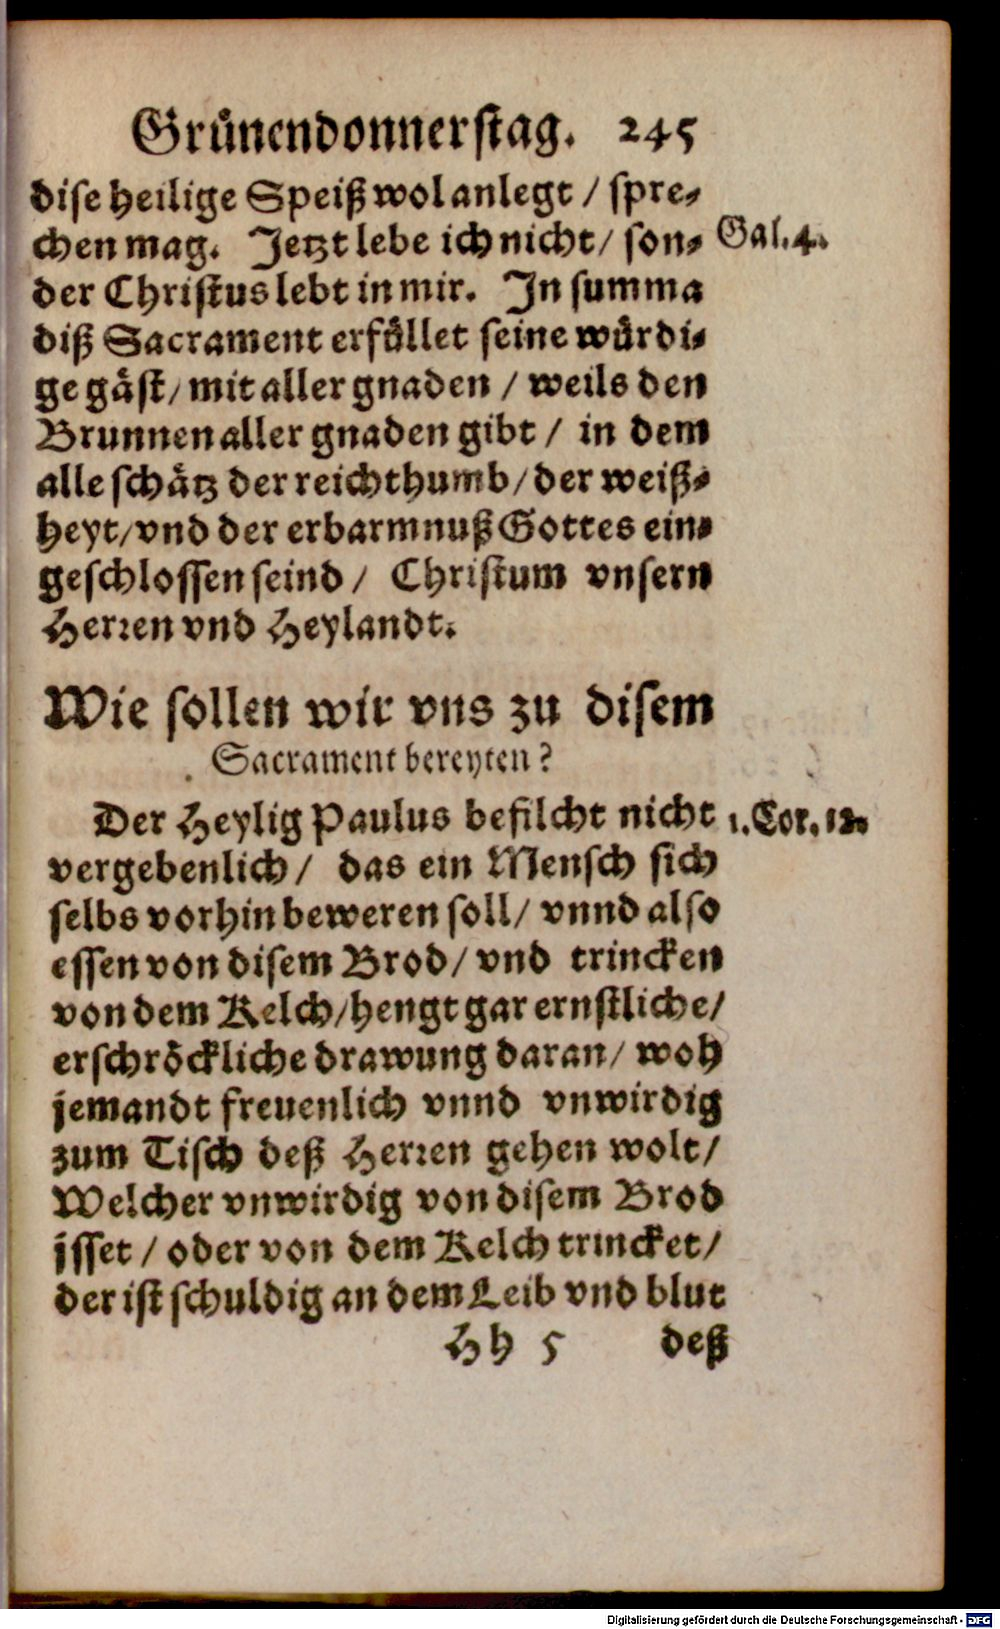 Grůnendonnerstag. 245
dise heilige Speiß wol anlegt / spre-
chen mag. Jetzt lebe ich nicht / son- Gal. 4.
der Christus lebt in mir. In summa
diß Sacrament erfůllet seine wůrdi-
ge gåst / mit aller gnaden / weils den
Brunnen aller gnaden gibt / in dem
alle schåtz der reichthumb / der weiß-
heyt / vnd der erbarmnuß Gottes ein-
geschlossen seind / Christum vnsern
Herren vnd Heylandt.
Wie sollen wir vns zu disem
Sacrament bereyten?
Der Heylig Paulus befilcht nicht 1. Cor. 12.
vergebenlich / das ein Mensch sich
selbs vorhin beweren soll / vnnd also
essen von disem Brod / vnd trincken
von dem Kelch / hengt gar ernstliche /
erschröckliche drawung daran / woh
jemandt freuenlich vnnd vnwirdig
zum Tisch deß Herren gehen wolt /
Welcher vnwirdig von disem Brod
jsset / oder von dem Kelch trincket /
der ist schuldig an dem Leib vnd blut
Hh 5 deß
Digitalisierung gefördert durch die Deutsche Forschungsgemeinschaft - DFG